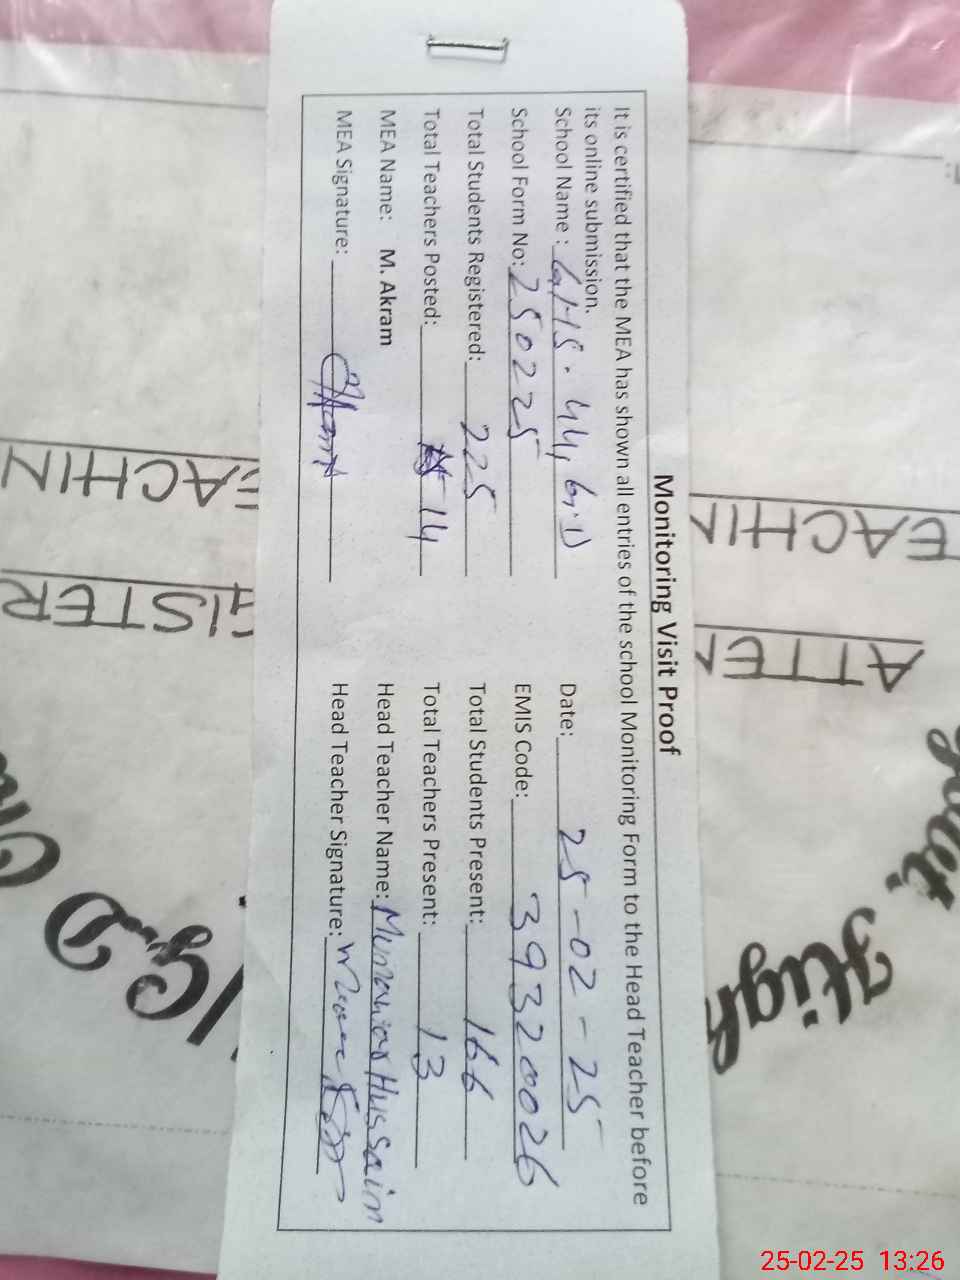 Monitoring Visit Proof
It is certified that the MEA has shown all entries of the school Monitoring Form to the Head Teacher before
its online submission.
School Name : GHS. 44, G.D Date: 25-02-25
School Form No: 250225 EMIS Code: 39320026
Total Students Registered: 225 Total Students Present: 166
Total Teachers Posted: 14 Total Teachers Present: 13
MEA Name: M. Akram Head Teacher Name: Hussain
MEA Signature: Head Teacher Signature:
EACHIN
ATTEN
High
EACHIN
ISTER
25-02-25 13:26